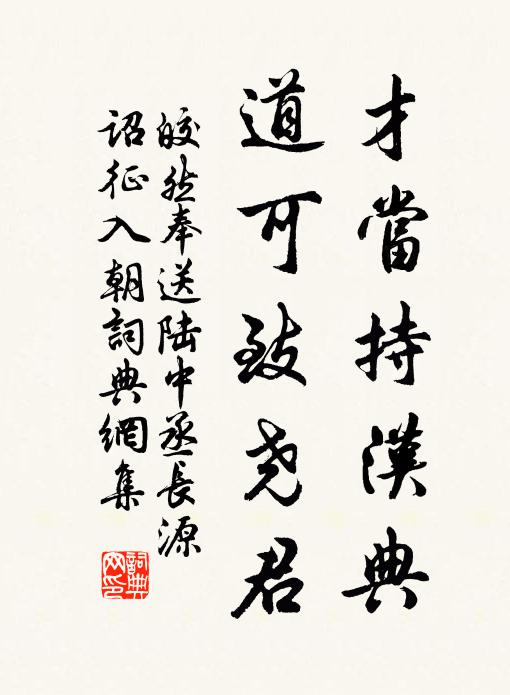 才當持漢典
道可致尧君
皎然奉送陆中丞長源
詔征入朝詞典網集
詞典網印